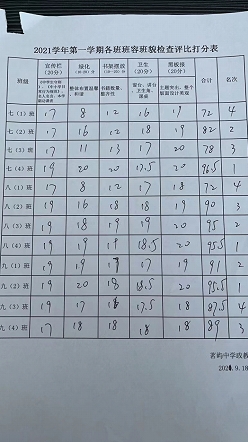 2021学年第一学期各班班容班貌检查评比打分表
班级 宣传栏（20分） 绿化（10-20）分 书籍摆放（10-20）分 卫生（20分） 黑板报（20分） 合计 名次
整体布置温馨和谐 书籍数量、整齐性 窗台、讲台、卫生角、地面 主题突出、整个版面设计美观
七（1）班 17 8 12 16 19 72 4
七（2）班 17 16 12 18 19 82 2
七（3）班 17 11 13 17 20 78 3
七（4）班 19 20 20 17.5 20 96.5 1
八（1）班 17 8 12 17 18 72 4
八（2）班 19 16 18 18 19 90 3
八（3）班 19 18 19 19 20 95 2
八（4）班 19 19 19 18.5 20 95.5 1
九（1）班 19 19 17 17 19 91 2
九（2）班 19 20 18 18.5 20 95.5 1
九（3）班 19 17 16 17.5 18 87.5 4
九（4）班 17 18 18 18 18 89 3
茗屿中学政教
2021.9.18